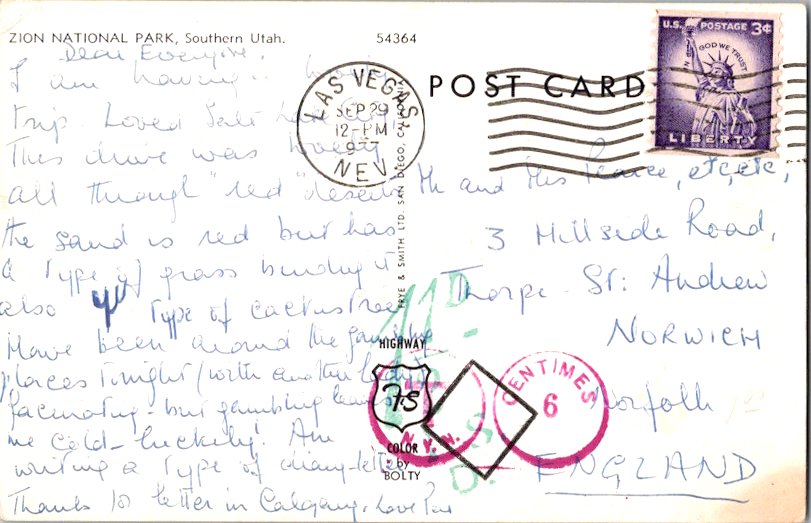 ZION NATIONAL PARK, Southern Utah.
54364
Dear Everyone,
I am having
trip Loved Salt Lake City
This drive was
all through "red" deserts
the sand is red but has
a type of grass binding it
also type of cactus tree
Have been around the gambling
places tonight (with another lady)
facinating - but gambling leaves
me cold - luckily! Am
writing a type of diary-letter
Thanks for letter in Calgary. Love
FRYE & SMITH LTD. SAN DIEGO, CALIFORNIA
POST CARD
LAS VEGAS
SEP 29
12-PM
NEV.
U.S. POSTAGE 3¢
IN GOD WE TRUST
LIBERTY
Mr and Mrs Pearce, etc, etc,
3 Hillside Road,
Thorpe St: Andrew
NORWICH
Norfolk
ENGLAND
HIGHWAY
75
COLOR
by
BOLTY
N.Y.N.
CENTIMES
6